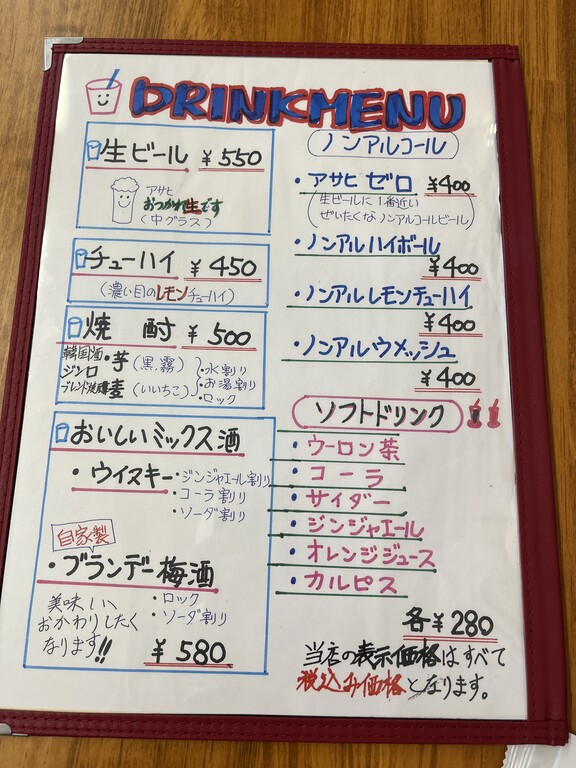 DRINKMENU
生ビール ¥550
アサヒ
おつかれ生です
(中グラス)
チューハイ ¥450
(濃い目のレモンチューハイ)
焼酎 ¥500
韓国酒
ジンロ
・芋(黒霧)
ブレンド焼酎
麦(いいちこ)
・水割り
・お湯割り
・ロック
おいしいミックス酒
・ウイスキー
・ジンジャエール割り
・コーラ割り
・ソーダ割り
自家製
・ブランデー梅酒
・ロック
・ソーダ割り
美味しい、
おかわりしたく
なります!!
¥580
ノンアルコール
・アサヒ ゼロ ¥400
(生ビールに1番近い
ぜいたくなノンアルコールビール)
・ノンアルハイボール
¥400
・ノンアルレモンチューハイ
¥400
・ノンアルウメッシュ
¥400
ソフトドリンク
・ウーロン茶
・コーラ
・サイダー
・ジンジャエール
・オレンジジュース
・カルピス
各¥280
当店の表示価格はすべて
税込み価格となります。